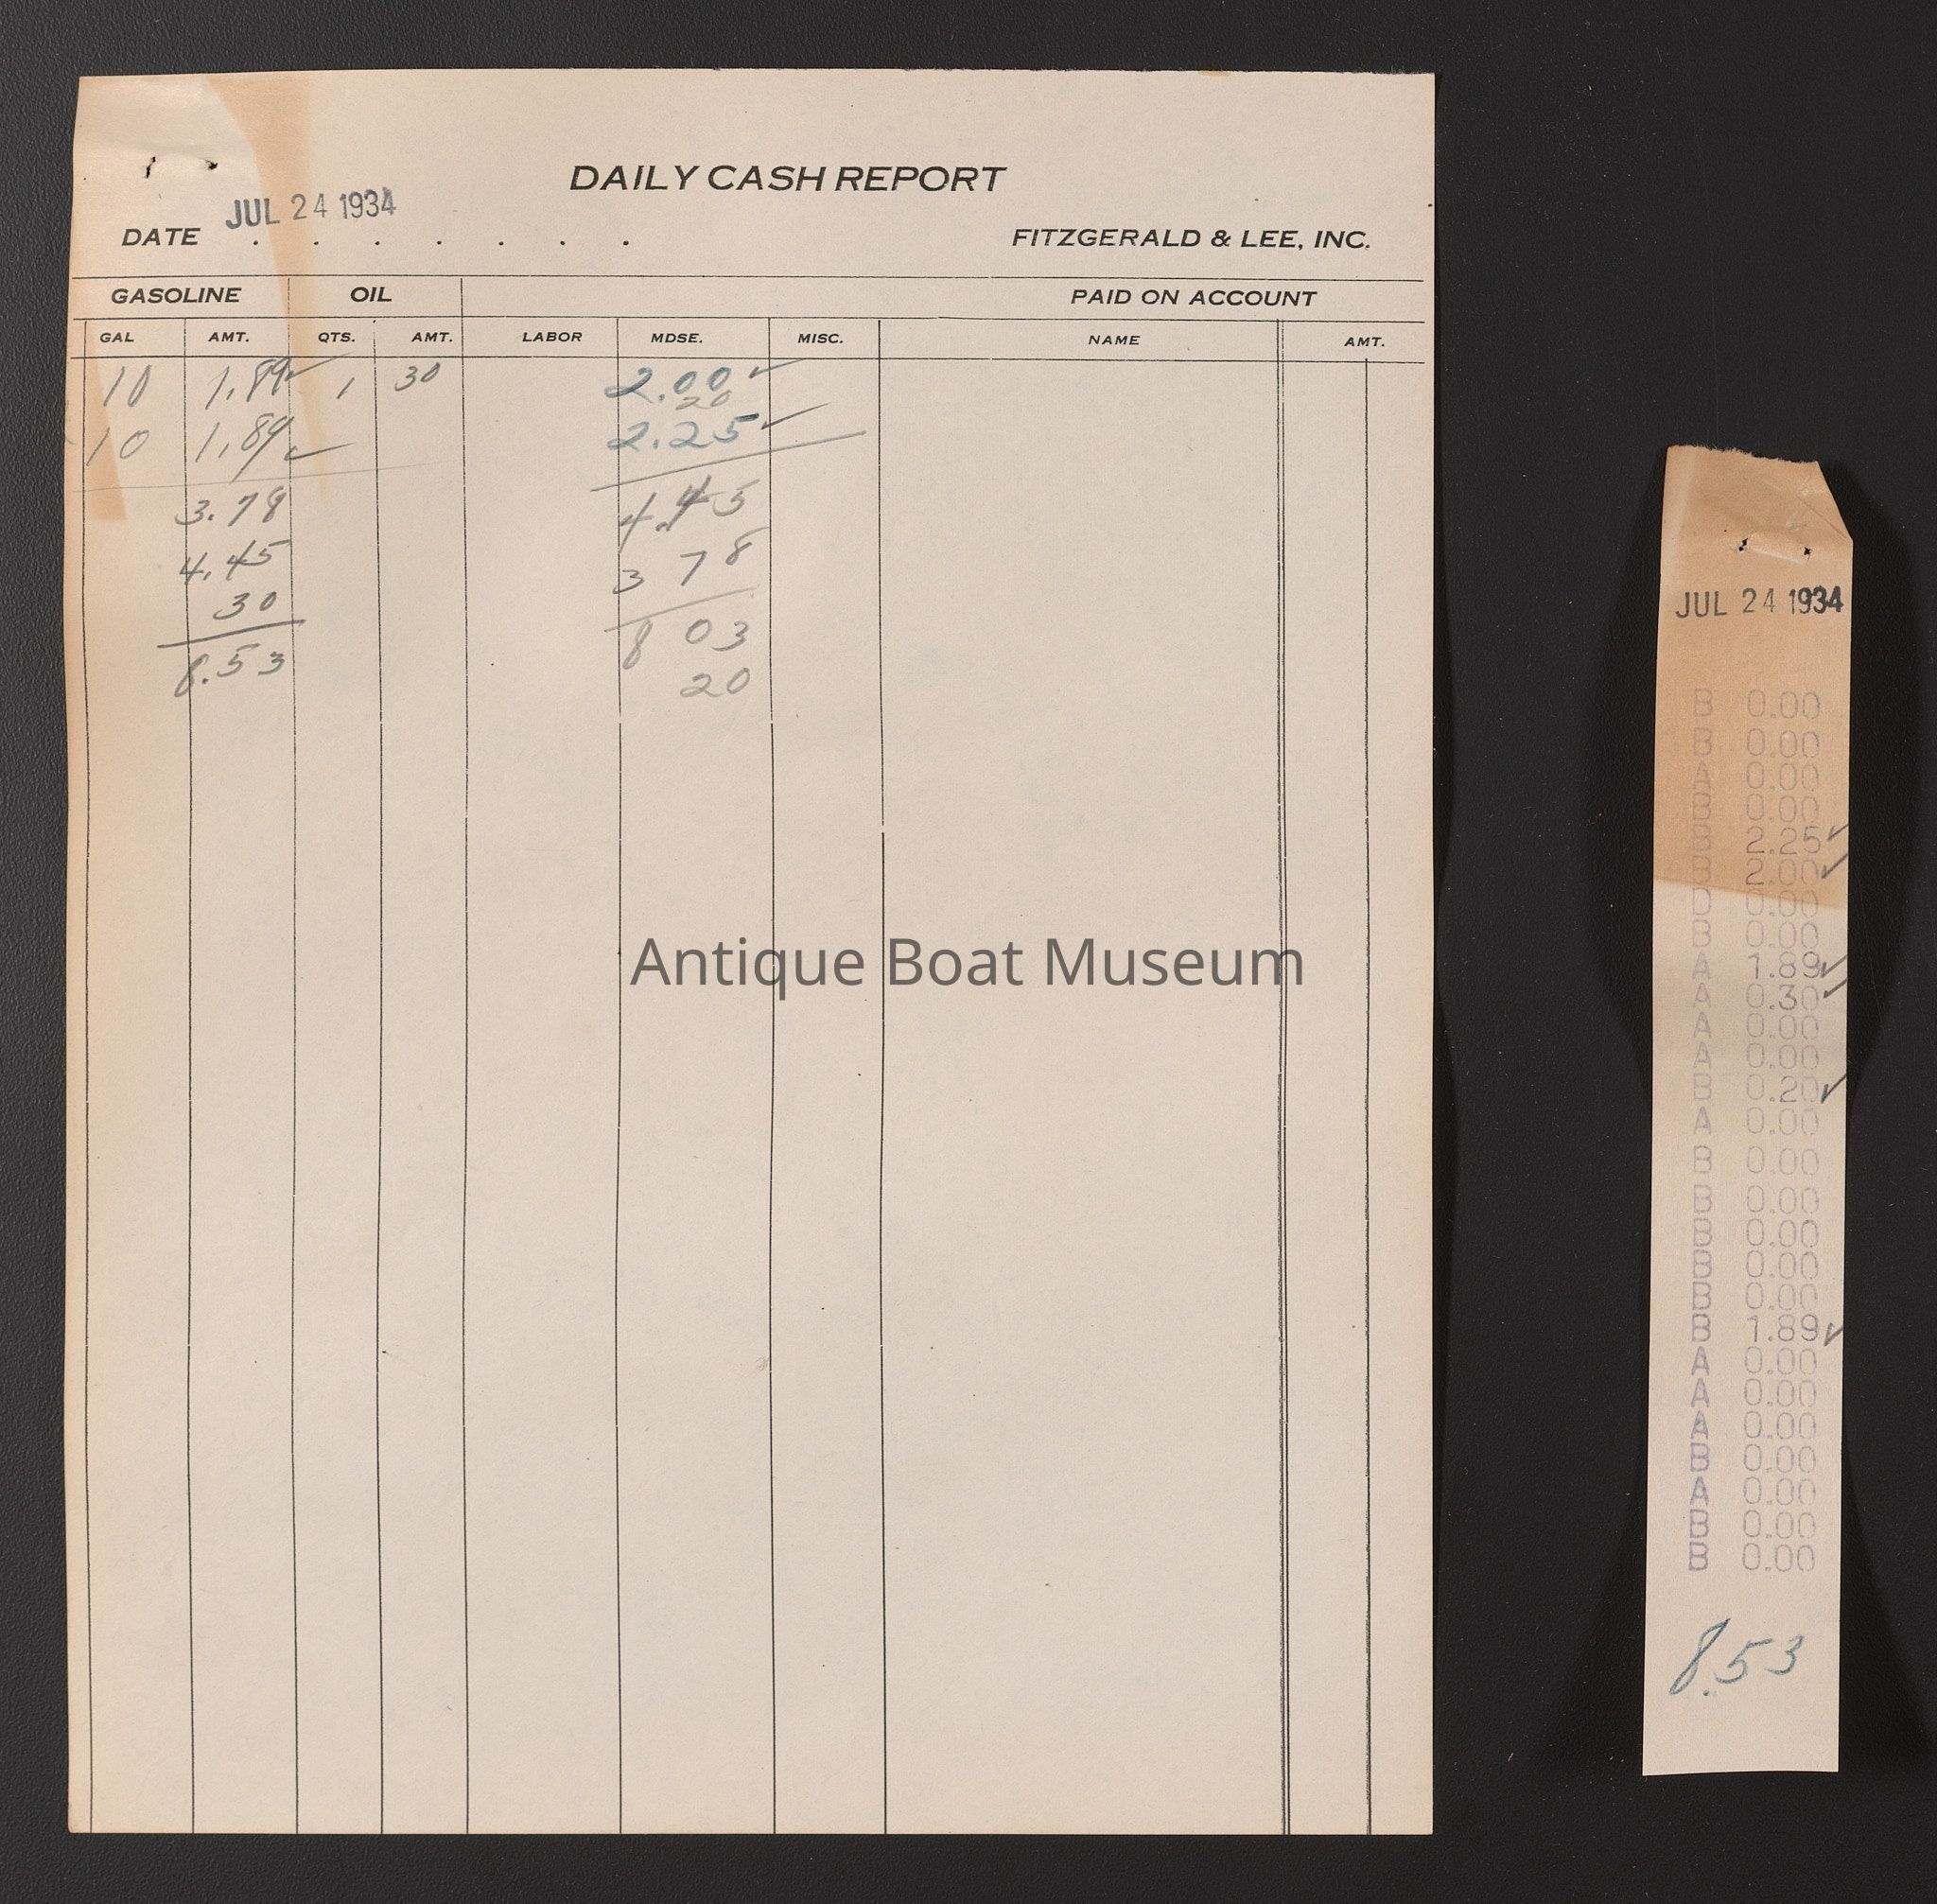 DAILY CASH REPORT
JUL 24 1934
DATE . . . . . . . FITZGERALD & LEE, INC.
GASOLINE OIL PAID ON ACCOUNT
GAL AMT. QTS. AMT. LABOR MDSE. MISC. NAME AMT.
10 1.89✓ 1 30 2.00✓
20
10 1.89✓ 2.25✓
3.78 4.45
4.45 3 78
30 8 03
8.53 20
Antique Boat Museum
JUL 24 1934
B 0.00
B 0.00
A 0.00
B 0.00
B 2.25✓
B 2.00✓
D 0.00
B 0.00
A 1.89✓
A 0.30✓
A 0.00
A 0.00
B 0.20✓
A 0.00
B 0.00
B 0.00
B 0.00
B 0.00
B 0.00
B 1.89✓
A 0.00
A 0.00
A 0.00
B 0.00
A 0.00
B 0.00
B 0.00
8.53